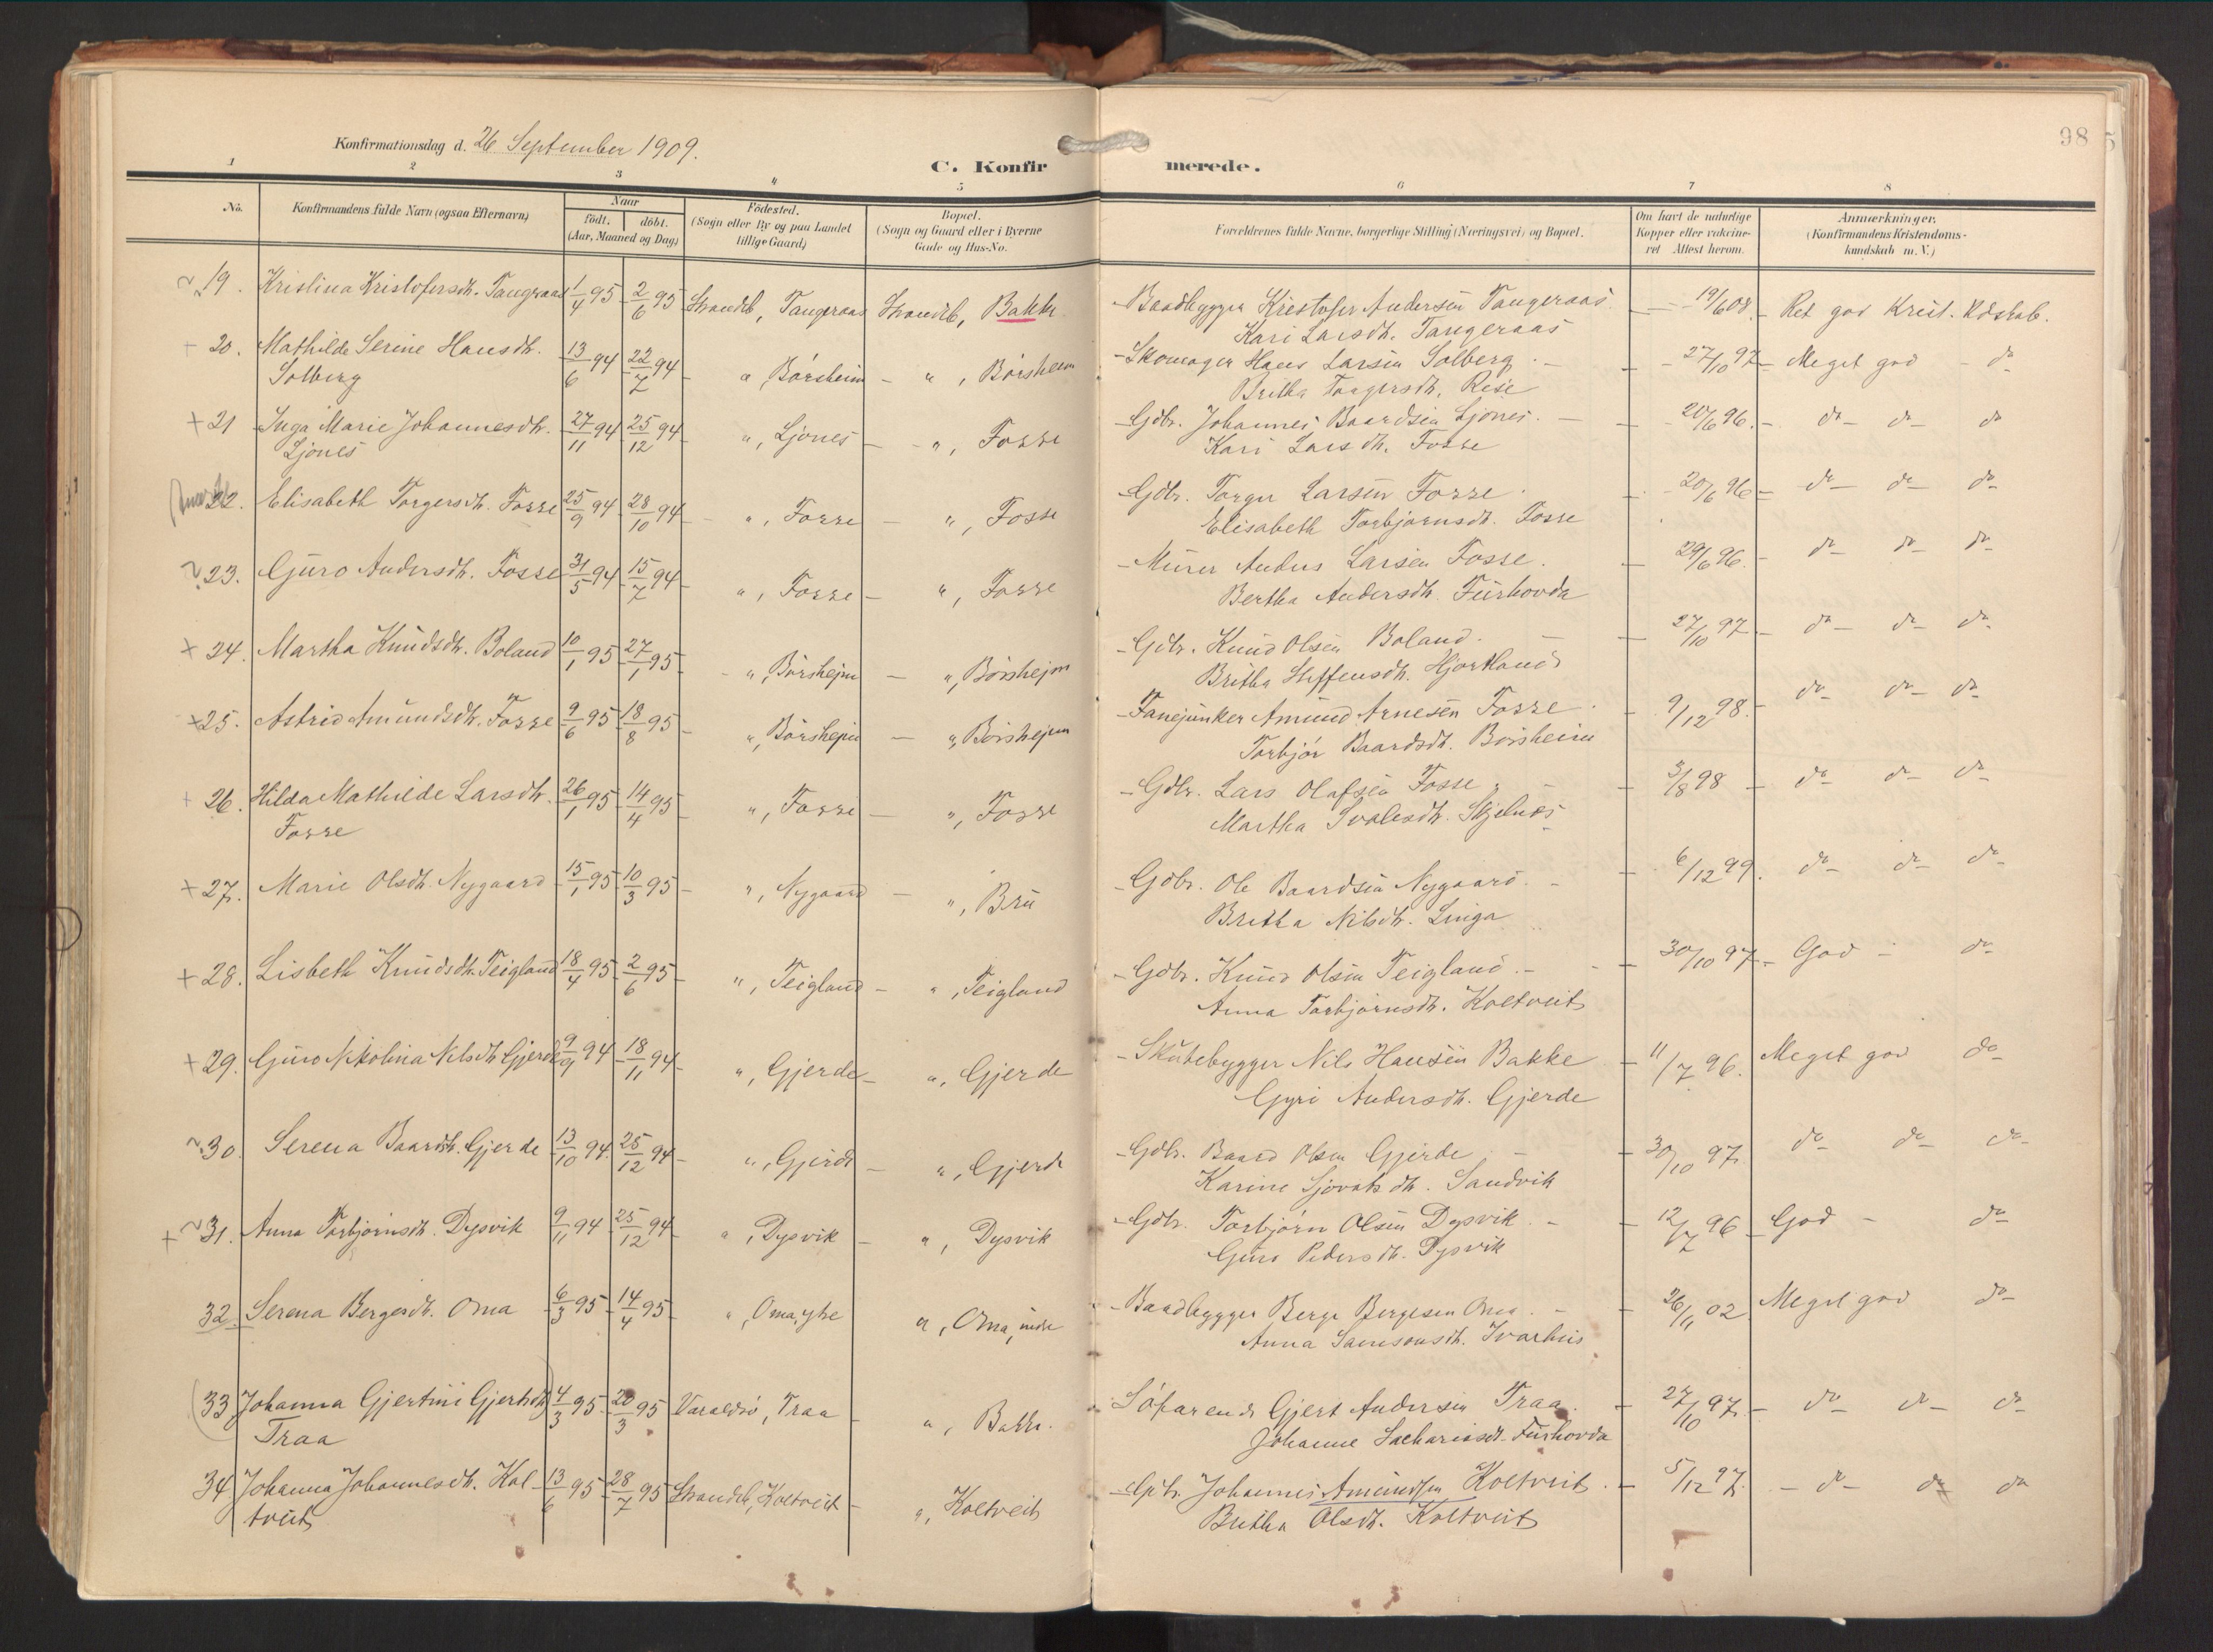 Konfirmationsdag d. 26 September 1909.
98
C. Konfirmerede.
1 2 3 4 5 6 7 8
No. Konfirmandens fulde Navn (ogsaa Efternavn) Naar födt. döbt. (Aar, Maaned og Dag) Födested. (Sogn eller By og paa Landet tillige Gaard) Bopæl. (Sogn og Gaard eller i Byerne Gade og Hus-No. Forældrenes fulde Navne, borgerlige Stilling (Næringsvei) og Bopæl. Om havt de naturlige Kopper eller vakcineret Attest herom. Anmærkninger. (Konfirmandens Kristendomskundskab m. V.)
19. Kristina Kristofersdt. Tangeraas 1/4 95 2/6 95 Strandeb, Tangeraas Strandb, Bakke - Baadbygger Kristofer Andersen Tangeraas 19/6 08. Ret god Krist. Kdskab.
Kari Larsdt. Tangeraas
20. Mathilde Serine Hansdt. 13/6 94 22/7 94 - " Börsheim - ", Börsheim - Skomager Hans Larsen Solberg. - 27/10 97 - Meget god - do
Solberg Britha Torgersdt. Reise
21 Inga Marie Johannesdt. 27/11 94 25/12 94 - ", Ljones - ", Fosse - Gdbr. Johannes Baardsen Ljones. - 20/6 96. - do - do - do
Ljones Kari Larsdt. Fosse
22. Elisabeth Torgersdt. Fosse 25/9 94 28/10 94 - ", Fosse - ", Fosse - Gdbr. Torger Larsen Fosse. 20/6 96 - do - do - do
Elisabeth Torbjörnsdt. Fosse
23. Guro Andersdt. Fosse 31/5 94 15/7 94 - ", Fosse - ", Fosse - Murer Anders Larsen Fosse. 29/6 96. - do - do - do
Bertha Andersdt. Furhovda
24. Martha Knudsdt. Boland 10/1 95 27/1 95 - ", Börshejm - ", Börshejm - Gdbr. Knud Olsen Boland. - 27/10 97 - do - do - do
Britha Steffensdt. Hjortland
25. Astrid Amundsdt. Fosse 9/6 95 18/8 95 - ", Börshejm - ", Börshejm - Fanejunker Amund Arnesen Fosse. 9/12 98. - do - do - do
Torbjör Baardsdt. Börsheim
26. Hilda Mathilde Larsdt. 26/1 95 14/4 95 - ", Fosse - ", Fosse - Gdbr. Lars Olafsen Fosse. 3/8 98 - do - do - do
Fosse Martha Skjelnes
27. Marie Olsdt. Nygaard 15/1 95 10/3 95 - ", Nygaard - ", Bru - Gdbr. Ole Baardsen Nygaard. - 6/12 99. do - do - do
Britha Nilsdt. Linga
28. Lisbeth Knudsdt. Teigland 18/4 95 2/6 95 - ", Teigland - ", Teigland - Gdbr. Knud Olsen Teigland. - 30/10 97 - God - do
Anna Torbjörnsdt. Koltveit
29. Guro Nikolina Nilsdt. Gjerde 9/9 94 18/11 94 - ", Gjerde - ", Gjerde - Skudebygger Nils Hansen Bakke - 11/7 96. Meget god do
Gyri Andersdt. Gjerde
30. Serena Baardsdt. Gjerde 13/10 94. 25/12 94 - ", Gjerde - ", Gjerde - Gdbr. Baard Olsen Gjerde - 30/10 97. do do do
Karine Sjovatsdt. Sandvik
31. Anna Torbjörnsdt. Dysvik 9/11 94 25/12 94 - ", Dysvik - ", Dysvik - Gdbr. Torbjörn Olsen Dysvik. - 12/7 96 - God - do
Guro Pedersdt. Dysvik
32. Serena Bergesdt. Oma 6/3 95 14/4 95 - ", Oma, ytre ", Oma, indre - Baadbygger Berge Bergesen Oma. - 26/11 02 Meget god do
Anna Samsonsdt. Ivarhus
33 Johanna Gjertine Gjertsdt. 4/3 95 20/3 95 Varaldsö, Traa - ", Bakke. - Söfarende Gjert Andersen Traa. - 27/10 97 - do - do - do
Traa Johanne Sachariasdt. Furhovda
34 Johanna Johannesdt. Kol- 13/6 95 28/7 95 Strandeb, Koltveit - ", Koltveit - Gdbr. Johannes Amundsen Koltveit. - 5/12 97. - do - do do
tveit Britha Olsdt. Koltveit